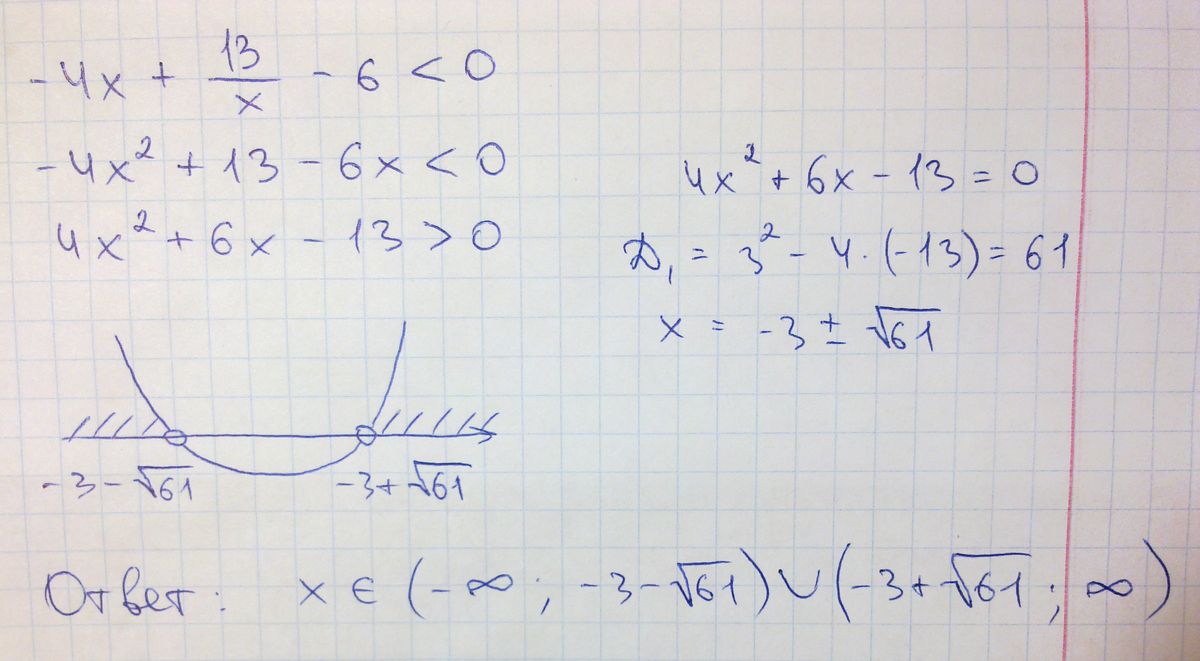 -4x + 13/x - 6 < 0
-4x² + 13 - 6x < 0
4x² + 6x - 13 > 0
4x² + 6x - 13 = 0
D₁ = 3² - 4·(-13) = 61
x = -3 ± √61
-3-√61
-3+√61
Ответ: x ∈ (-∞; -3-√61) ∪ (-3+√61; ∞)